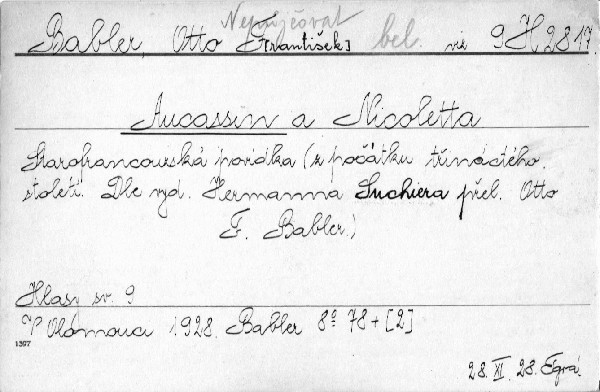 Nepůjčovat
Babler, Otto F[rantišek] bel. viz 9 H 2817.
Aucassin a Nicoletta
Starofrancouzská povídka (z počátku třináctého
století. Dle vyd. Hermanna Suchiera přel. Otto
F. Babler.)
Hlasy sv. 9
V Olomouci 1928. Babler 8º 78 + [2]
1397
28. XI. 28.